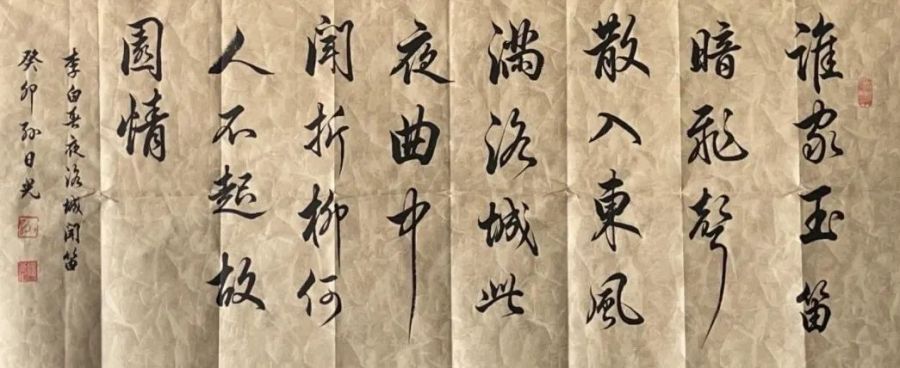 誰家玉笛
暗飛聲
散入東風
滿洛城此
夜曲中
聞折柳何
人不起故
園情
李白春夜洛城聞笛
癸卯孫日光